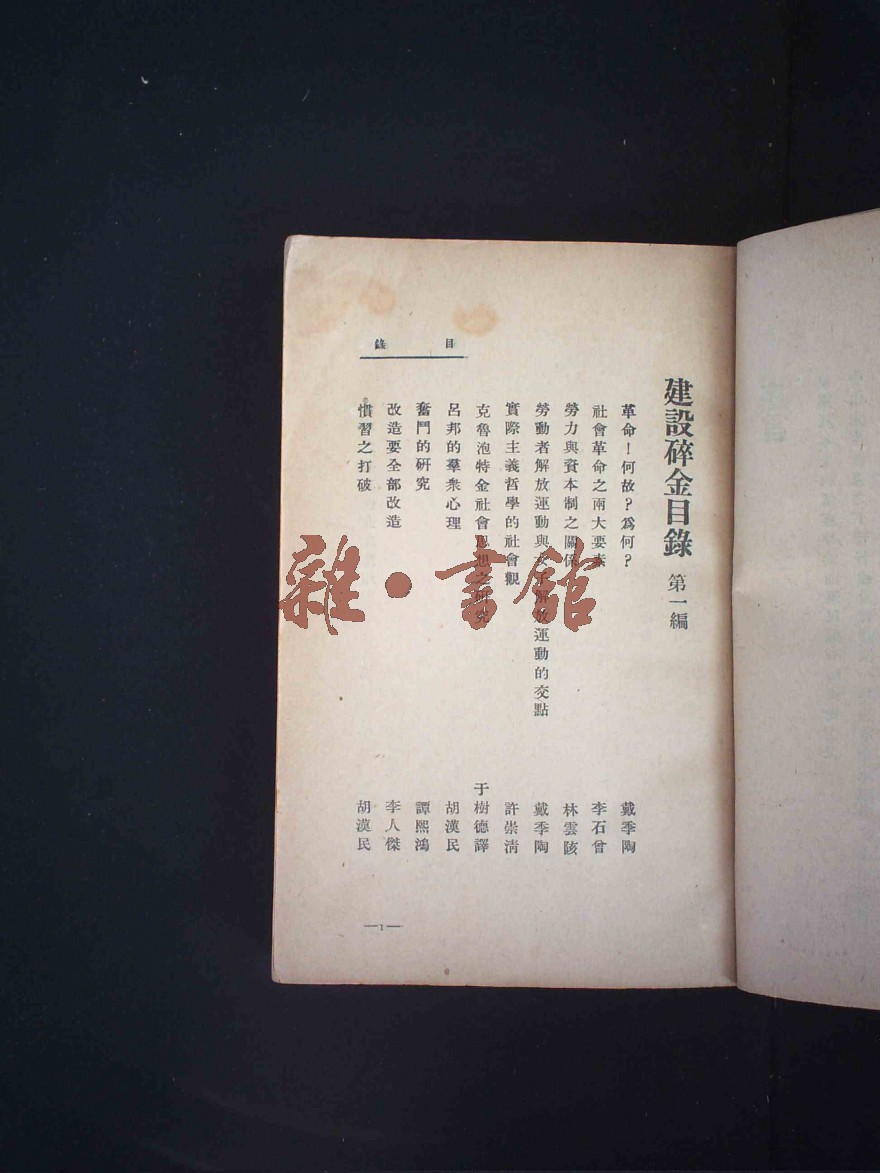 目錄
建設碎金目錄 第一編
革命！何故？爲何？ 戴季陶
社會革命之兩大要素 李石曾
勞力與資本制之關係 林雲陔
勞動者解放運動與女子解放運動的交點 戴季陶
實際主義哲學的社會觀 許崇清
克魯泡特金社會思想之研究 于樹德譯
呂邦的羣衆心理 胡漢民
奮鬥的研究 譚熙鴻
改造要全部改造 李人傑
慣習之打破 胡漢民
—1—
雜·書館